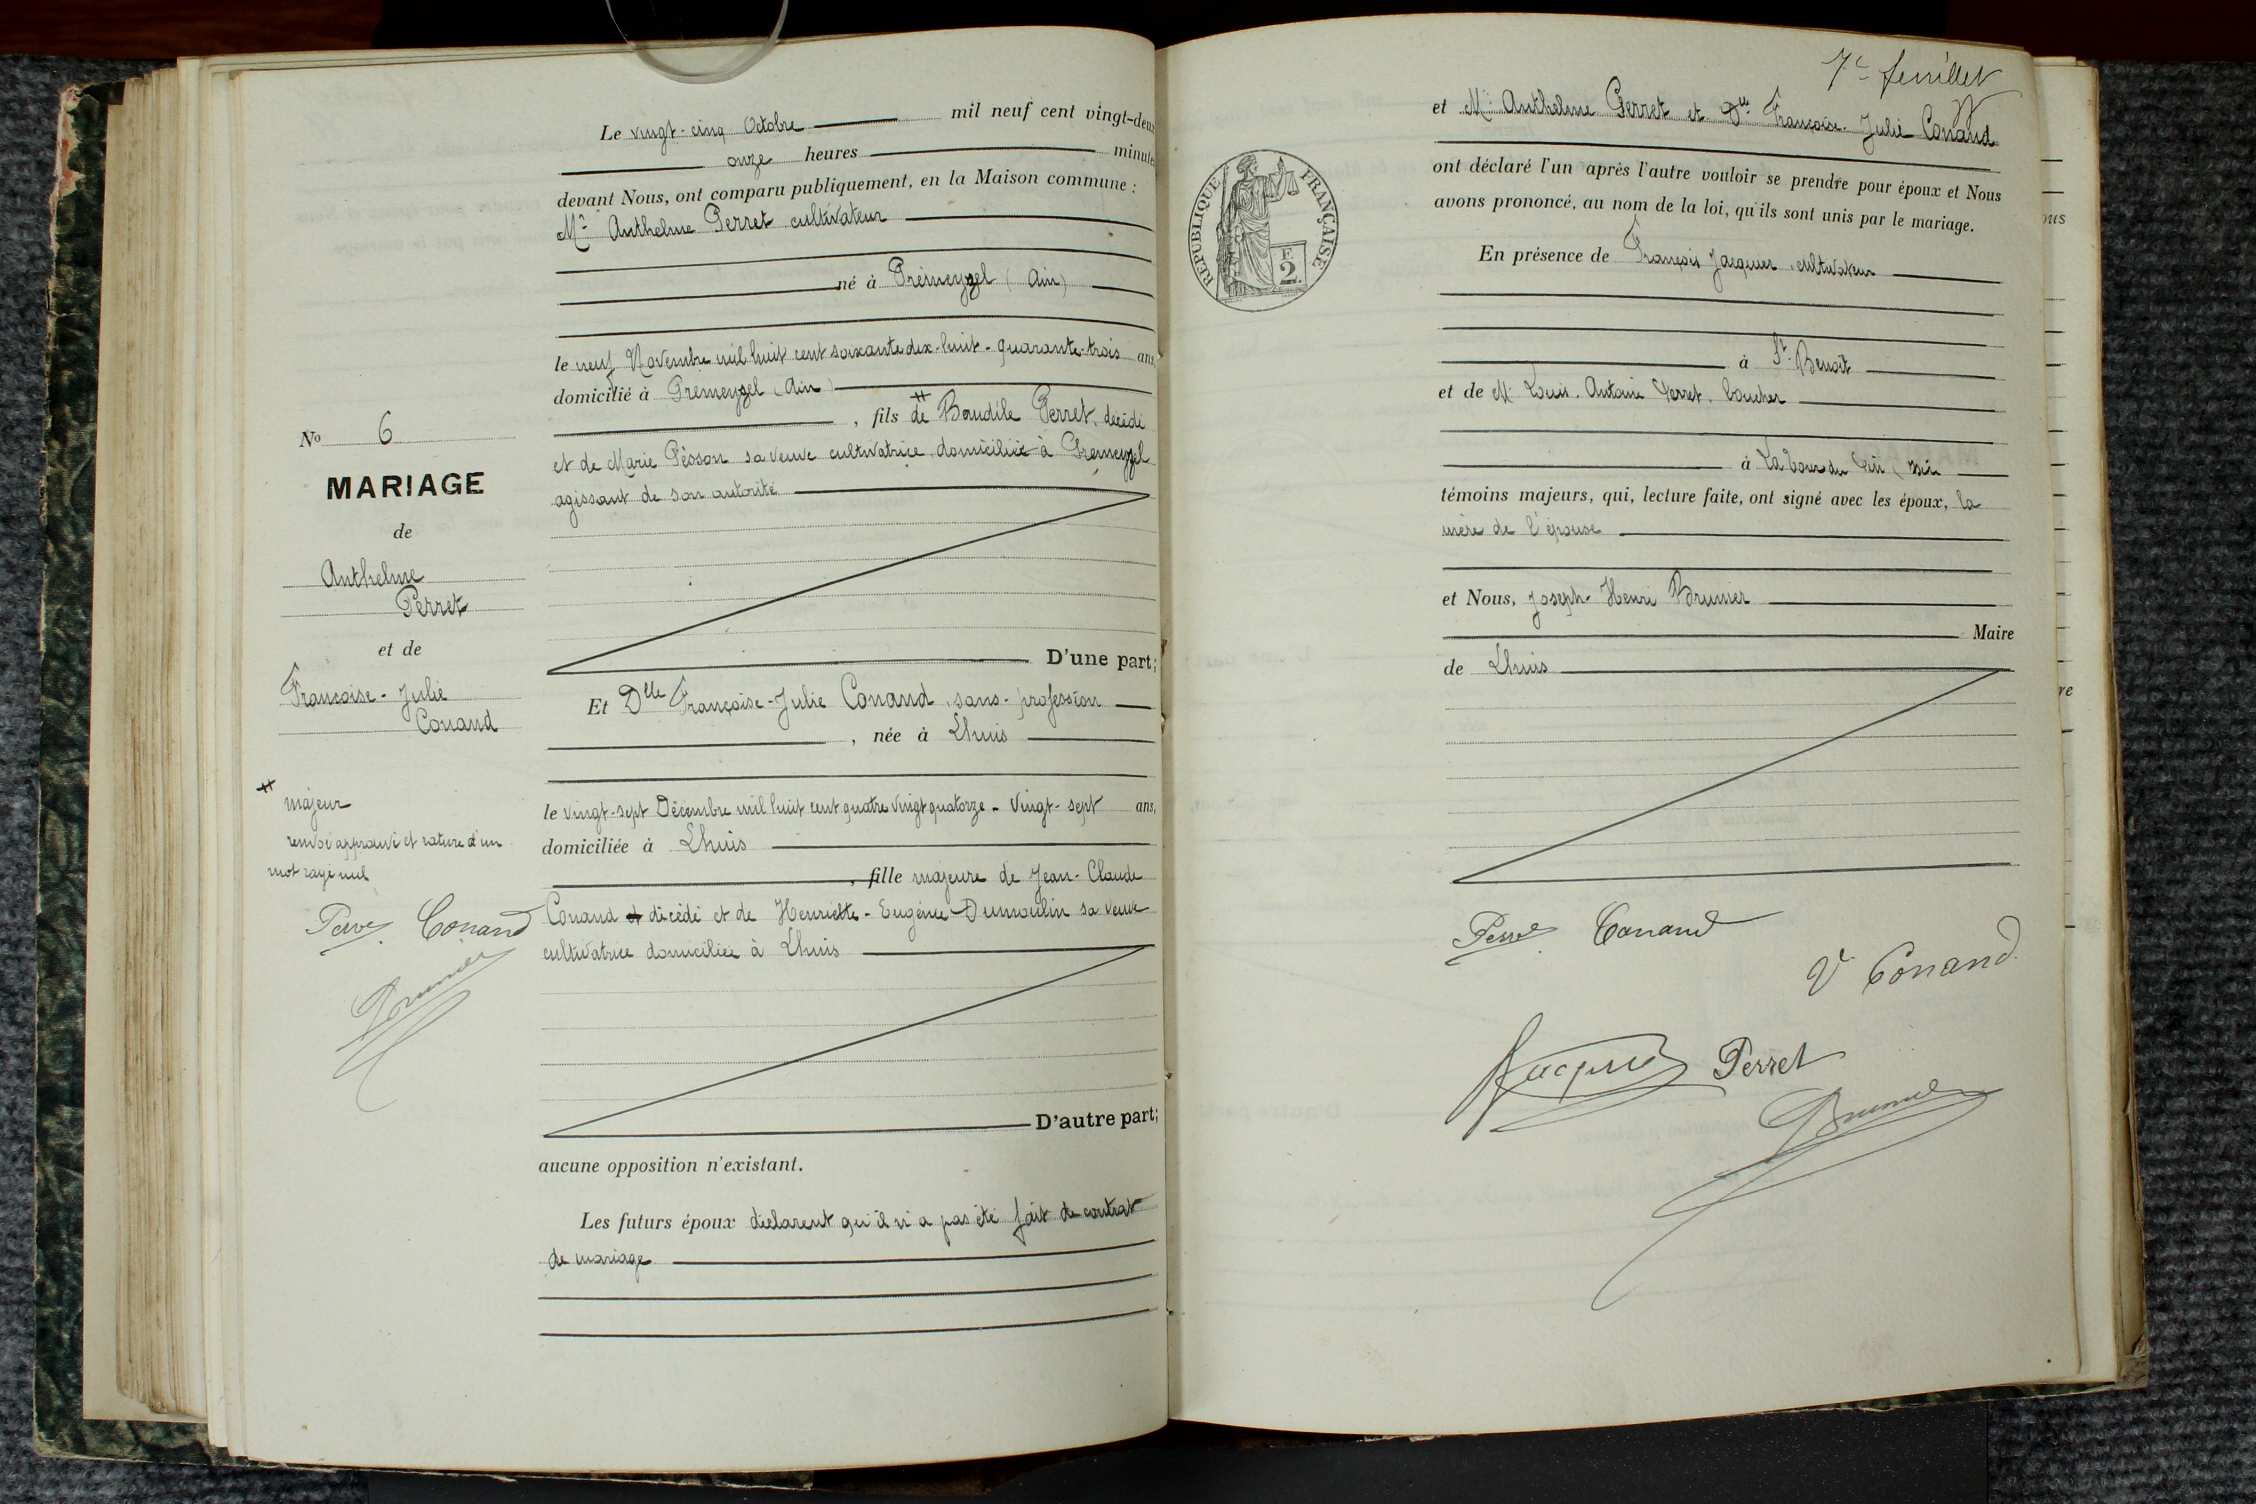 Le vingt-cinq Octobre mil neuf cent vingt-deux
onze heures minutes
devant Nous, ont comparu publiquement, en la Maison commune :
Mr Anthelme Perret cultivateur
né à Prémeyzel (Ain)
le neuf Novembre mil huit cent soixante dix-huit - quarante-trois ans
domicilié à Prémeyzel (Ain)
, fils de Baudile Perret, décédé
et de Marie Pésson sa veuve cultivatrice domiciliée à Prémeyzel
agissant de son autorité
D'une part;
Et Dlle Françoise-Julie Conand, sans-profession
, née à Lhuis
le vingt-sept Décembre mil huit cent quatre vingt quatorze - vingt-sept ans,
domiciliée à Lhuis
, fille majeure de Jean-Claude
Conand décédé et de Henriette-Eugénie Dumoulin sa veuve
cultivatrice domiciliée à Lhuis
D'autre part;
aucune opposition n'existant.
Les futurs époux déclarent qu'il n'a pas été fait de contrat
de mariage
No 6
MARIAGE
de
Anthelme
Perret
et de
Françoise-Julie
Conand
majeur
renvoi approuvé et rature d'un
mot rayé nul
Perret Conand
Brunier
7e feuillet
et Mr Anthelme Perret et Dlle Françoise-Julie Conand
ont déclaré l'un après l'autre vouloir se prendre pour époux et Nous
avons prononcé, au nom de la loi, qu'ils sont unis par le mariage.
REPUBLIQUE FRANÇAISE
F
2
En présence de François Jacquier, cultivateur
à St-Benoît
et de Mr Louis-Antoine Perret, boucher
à La Tour du Pin
témoins majeurs, qui, lecture faite, ont signé avec les époux, la
mère de l'épouse
et Nous, Joseph-Henri Brunier
Maire
de Lhuis
Perret Conand
Ve Conand
Jacquier Perret
Brunier